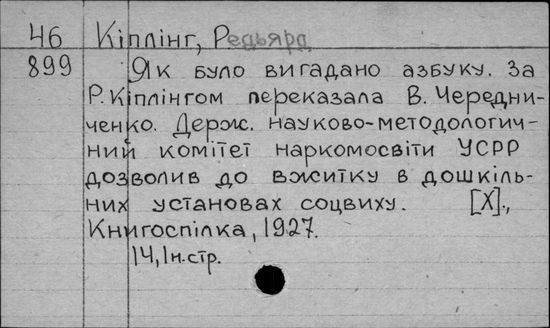 46 Кіплінг, Редьярд
899 Як було вигадано азбуку. За
Р. Кіплінгом переказала В. Чередни-
ченко. Держ. науково-методологич-
ний комітет наркомосвіти УСРР
дозволив до вжитку в дошкіль-
них установах соцвиху. [X].,
Книгоспілка, 1927.
14, 1н.стр.